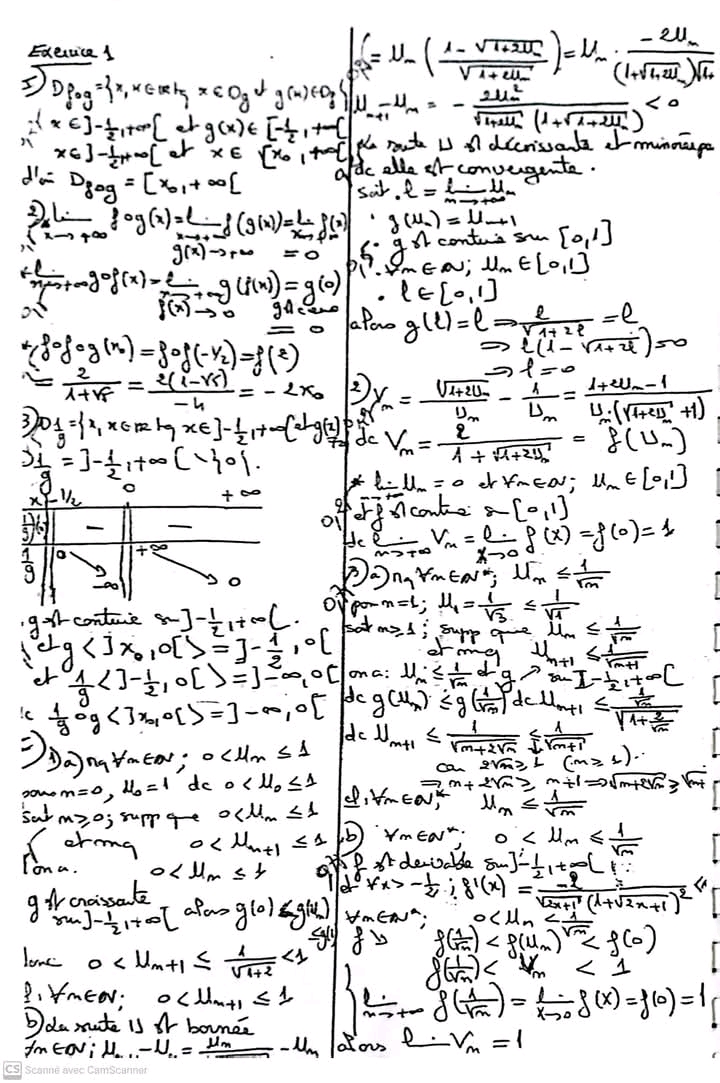 Exercice 1
1) Dfog = {x, x∈IR tq x∈Dg et g(x)∈Df}
x∈]-1/2,+∞[ et g(x)∈[-1/2,+∞[
x∈]-1/2,+∞[ et x∈[x₀,+∞[
d'où Dfog = [x₀,+∞[
2) lim x→+∞ fog(x) = lim x→+∞ f(g(x)) = lim f(x)
g(x)→+∞ = 0
* lim x→+∞ gof(x) = lim x→+∞ g(f(x)) = g(0)
f(x)→0
= 0
* fofog(x₀) = fof(-1/2) = f(2)
= 2/(1+√5) = 2(1-√5)/-4 = -2x₀
3) D1/g = {x, x∈IR tq x∈]-1/2,+∞[ et g(x)≠0
D1/g = ]-1/2,+∞[ \ {0}.
x -1/2 0 +∞
(1/g)'(x) - -
1/g 0 -∞ +∞ 0
. g est continue sur ]-1/2,+∞[.
et g<]x₀,0[> = ]-1/2,0[
et 1/g<]-1/2,0[> = ]-∞,0[
1/g og<]x₀,0[> = ]-∞,0[
1) a) mq ∀n∈IN; 0<Un≤1
pour n=0, U₀=1 dc 0<U₀≤1
soit n≥0; supp que 0<Un≤1
et mq 0<Un+1≤1
on a. 0<Un≤1
g est croissante
sur ]-1/2,+∞[ alors g(0)<g(Un)
≤g(1)
donc 0<Un+1≤1/√(1+2)<1
∀n∈IN; 0<Un+1≤1
b) La suite U est bornée
∀n∈IN; Un+1-Un = Un/ -Un
= Un((1-√(1+2Un))/√(1+2Un)) = Un . -2Un/((1+√(1+2Un))√(1+
Un+1-Un = - 2Un²/(√(1+2Un)(1+√(1+2Un))) <0
La suite U est décroissante et minorée par
0 dc elle est convergente.
soit . l = lim n→+∞ Un
. g(Un) = Un+1
. g est continue sur [0,1]
. ∀n∈IN; Un∈[0,1]
. l∈[0,1]
alors g(l)=l ⇒ l/√(1+2l) = l
⇒ l(1-√(1+2l))=0
⇒ l=0
2) Vn = √(1+2Un)/Un - 1/Un = (1+2Un-1)/(Un.(√(1+2Un)+1))
dc Vn = 2/(1+√(1+2Un)) = f(Un)
* lim n→+∞ Un = 0 et ∀n∈IN; Un∈[0,1]
et f est continue sur [0,1]
dc lim n→+∞ Vn = lim x→0 f(x) = f(0) = 1
3) a) mq ∀n∈IN*; Un≤1/√n
pour n=1; U₁=1/√3 ≤ 1/√1
soit n≥1; supp que Un≤1/√n
et mq Un+1≤1/√(n+1)
on a: Un≤1/√n et g ↗ sur ]-1/2,+∞[
dc g(Un)≤g(1/√n) dc Un+1≤(1/√n)/√(1+2/√n)
dc Un+1≤1/√(n+2√n) ≤ 1/√(n+1)
car 2√n≥1 (n≥1).
⇒ n+2√n≥n+1 ⇒ √(n+2√n)≥√(n+1)
∀n∈IN* Un≤1/√n
b) ∀n∈IN*; 0<Un≤1/√n
f est dérivable sur ]-1/2,+∞[
et ∀x>-1/2; f'(x) = -2/(√(2x+1)(1+√(2x+1))²) <
∀n∈IN*; 0<Un<1/√n
f ↘ f(1/√n)<f(Un)<f(0)
f(1/√n)< Vn <1
lim n→+∞ f(1/√n) = lim x→0 f(x) = f(0) = 1
Alors lim Vn = 1
CS Scanné avec CamScanner